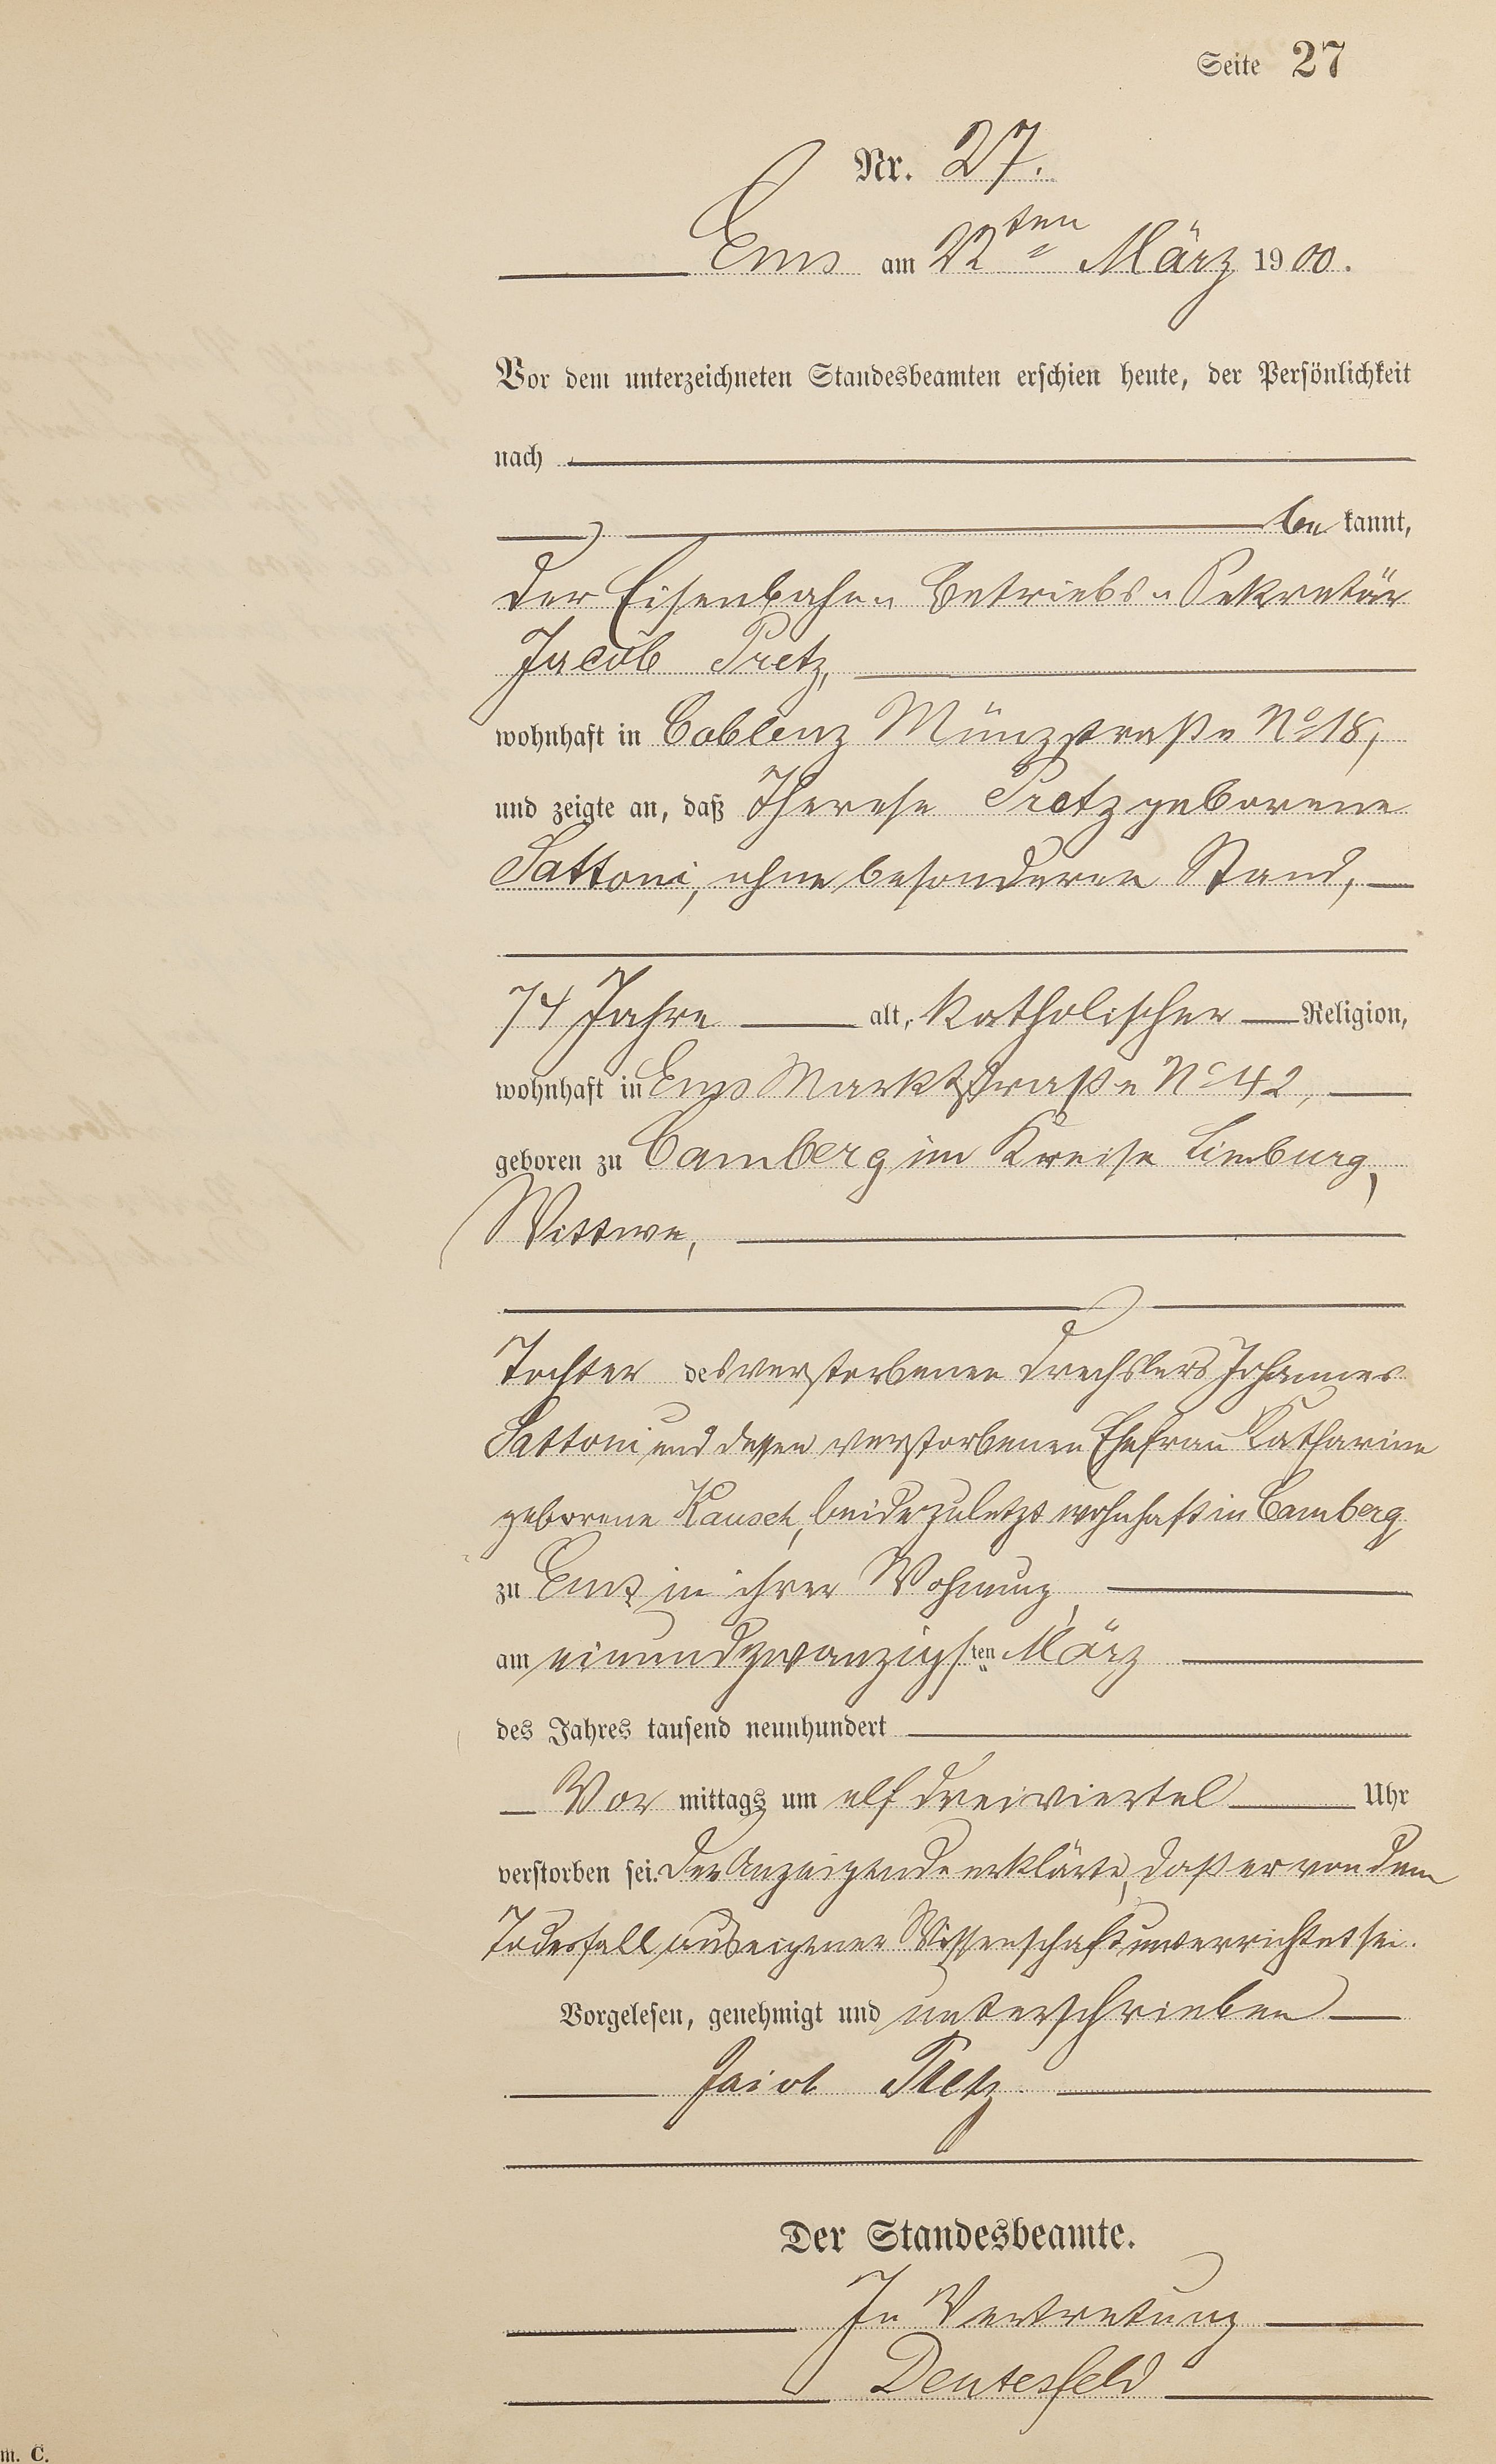 Seite 27
Nr. 27.
Ems am 22ten März 1900.
Vor dem unterzeichneten Standesbeamten erschien heute, der Persönlichkeit
nach
be kannt,
der Eisenbahn-Betriebs-Sekretär
Jacob Pretz,
wohnhaft in Coblenz Münzstraße No 18,
und zeigte an, daß Therese Pretz geborene
Sattoni, ohne besonderen Stand,
74 Jahre alt, katholischer Religion,
wohnhaft in Ems Marktstraße No 42,
geboren zu Camberg im Kreise Limburg,
Wittwe,
Tochter des verstorbenen Drechslers Johannes
Sattoni und dessen verstorbenen Ehefrau Katharine
geborene Rausch, beide zuletzt wohnhaft in Camberg,
zu Ems in ihrer Wohnung,
am einundzwanzigsten März
des Jahres tausend neunhundert
Vor mittags um elf dreiviertel Uhr
verstorben sei. Der Anzeigende erklärte, daß er von dem
Todesfall aus eigener Wissenschaft unterrichtet sei.
Vorgelesen, genehmigt und unterschrieben
Jacob Pretz
Der Standesbeamte.
In Vertretung
Deutesfeld
m. C.